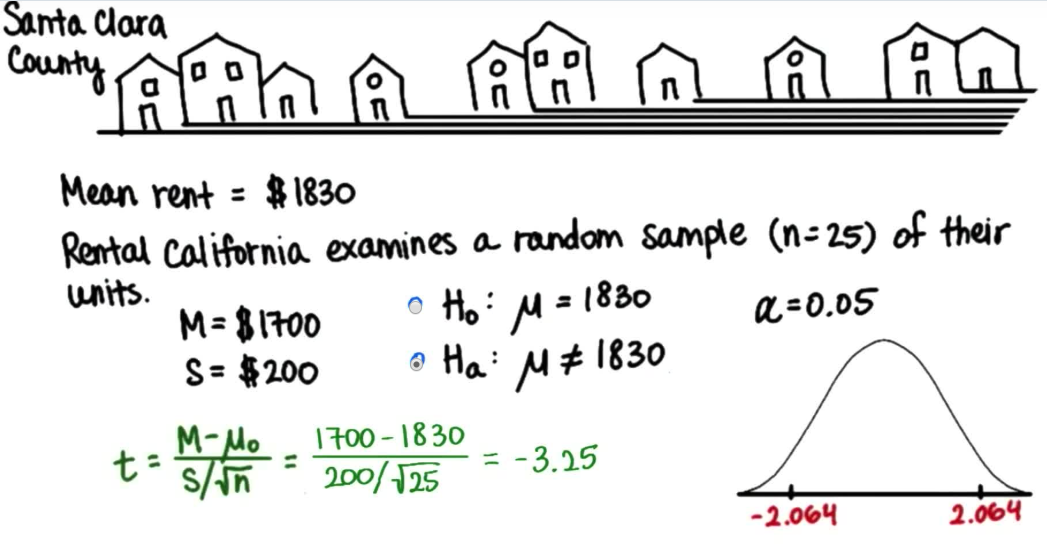 Santa Clara
County
Mean rent = $1830
Rental California examines a random sample (n=25) of their
units.
M = $1700
S = $200
H₀: μ = 1830
Hₐ: μ ≠ 1830
α=0.05
t = (M-μ₀)/(S/√n) = (1700-1830)/(200/√25) = -3.25
-2.064 2.064